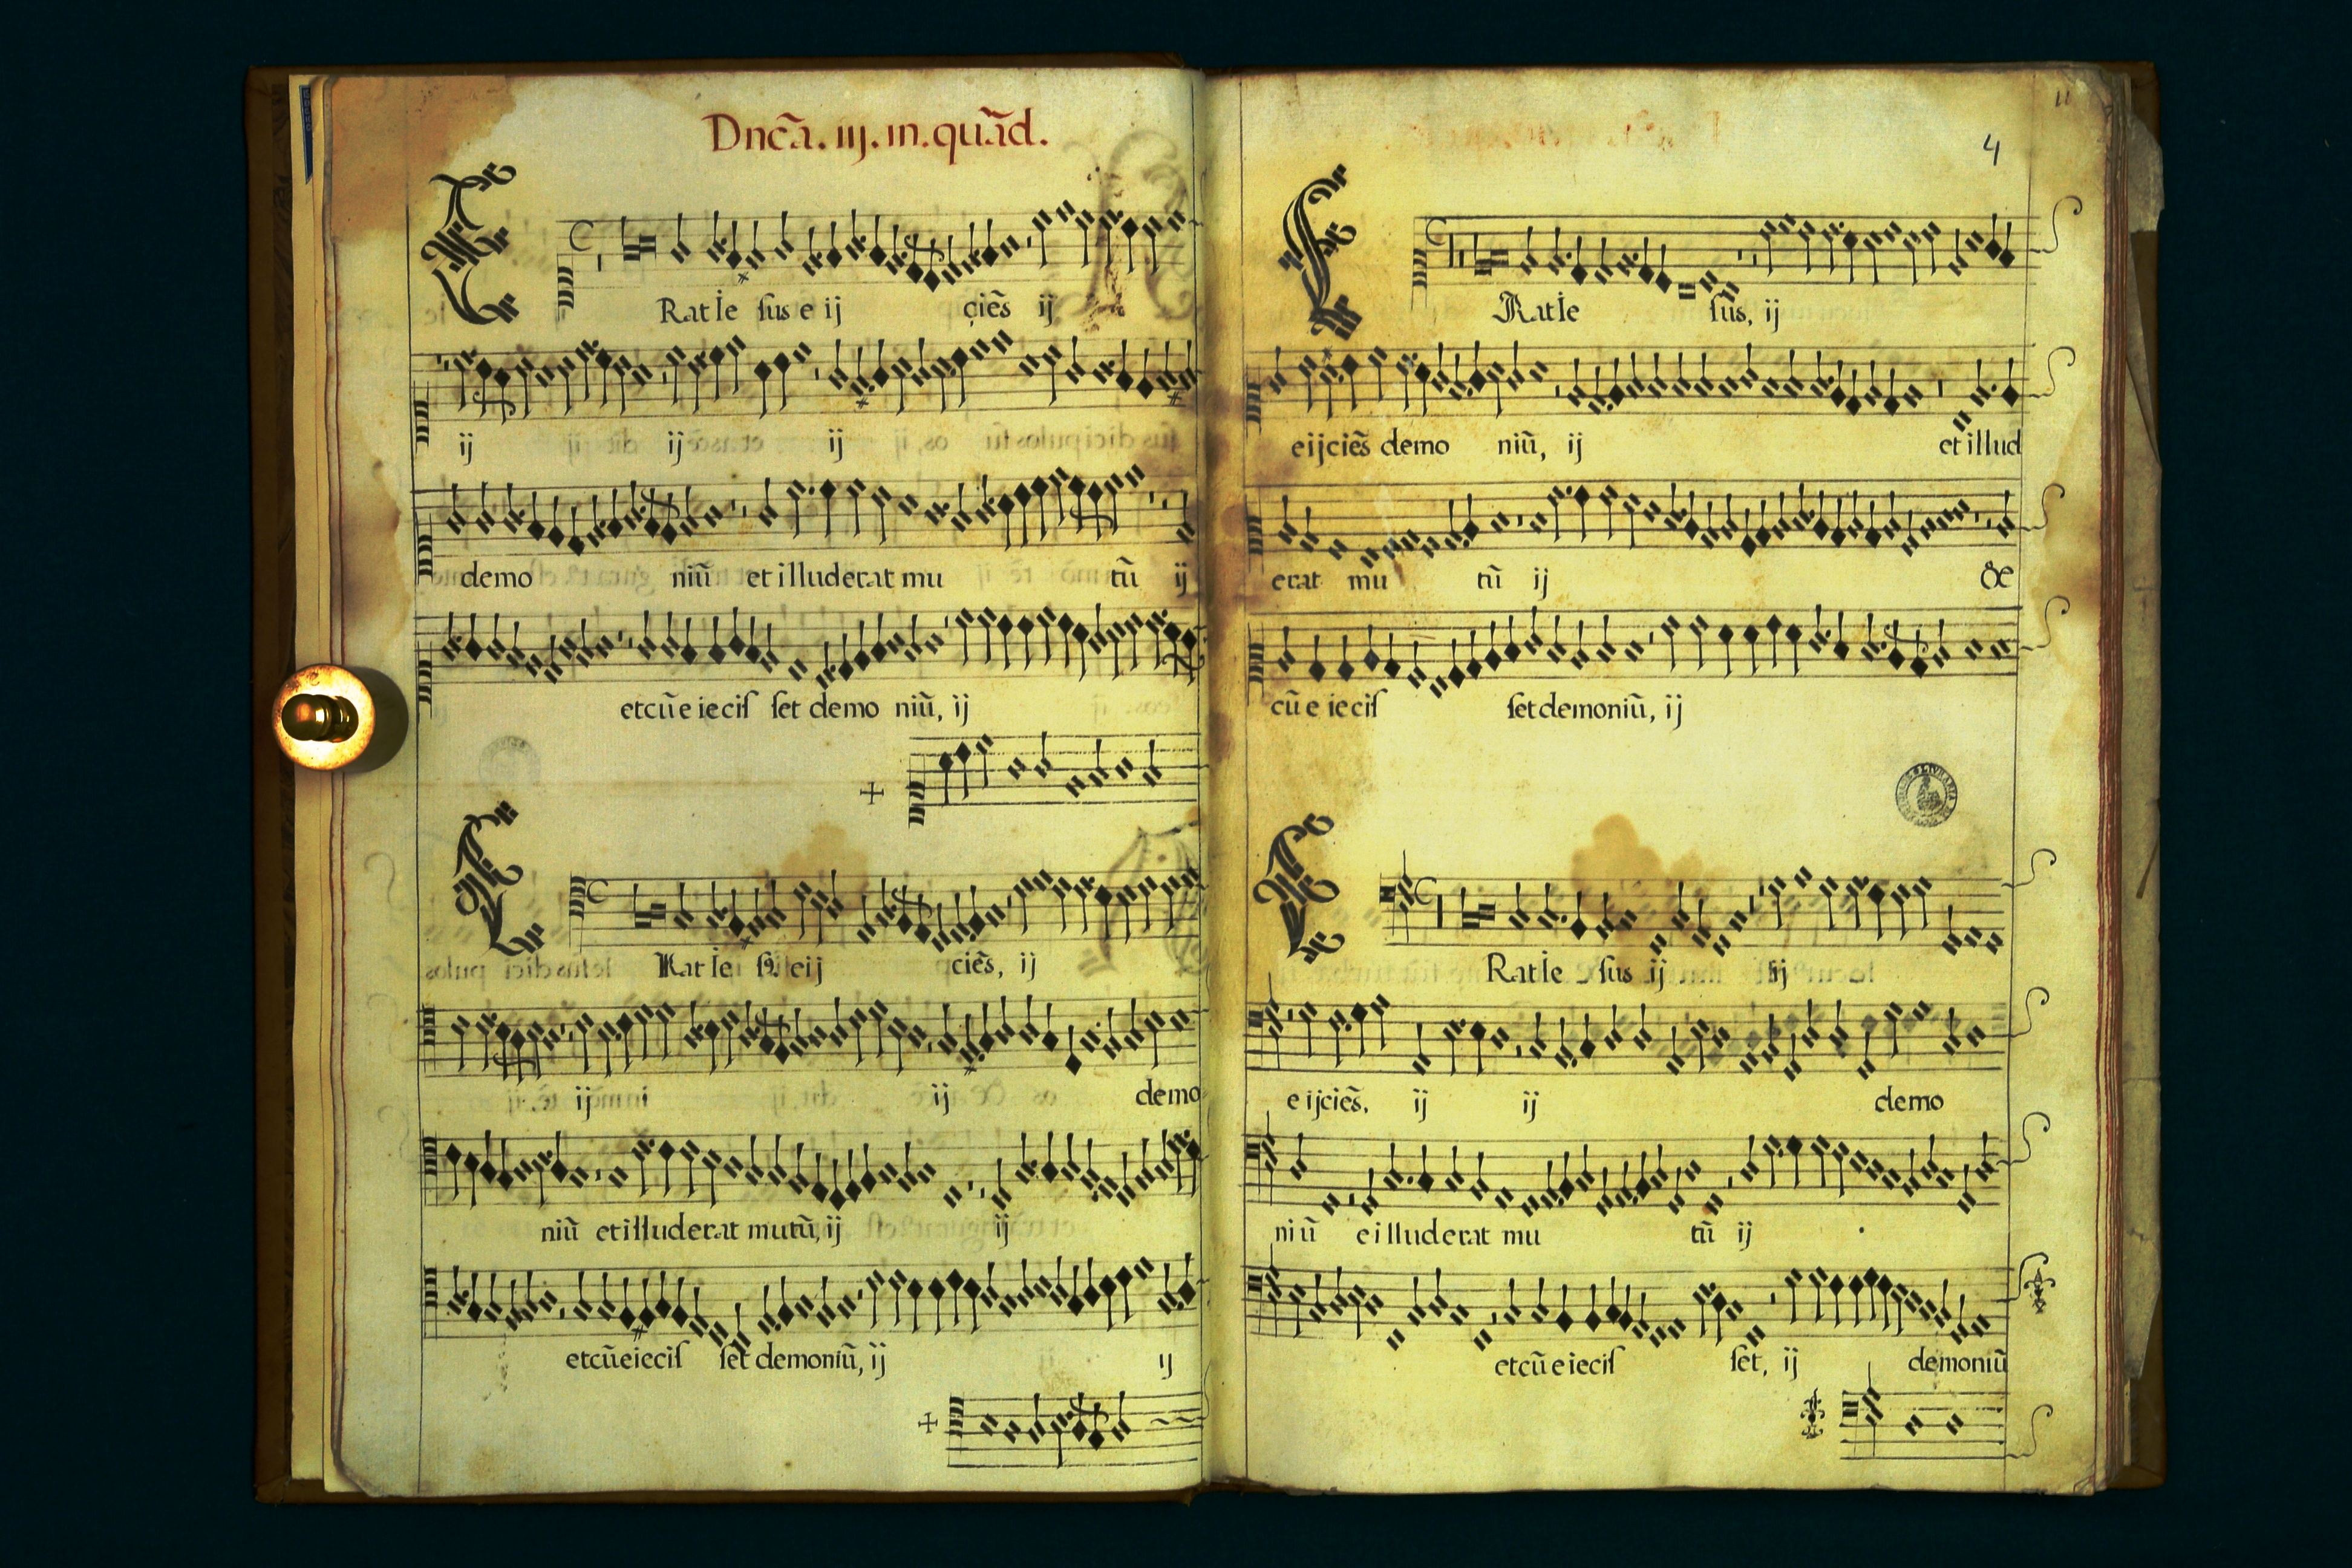 Dnc̃a. iij. in. quãd.
E Rat Ie ſus e ij cieñs ij
ij ij ij
demo niũ et illuderat mu tũ ij
et cũ e iecil ſet demo niũ, ij
E Rat Ie ſus eij cieñs, ij
ij ij demo
niũ et illuderat mutũ, ij ij
et cũ eiecil ſet demoniũ, ij ij
4
E Rat Ie ſus, ij
eijcieñs demo niũ, ij et illud
erat mu tũ ij &
cũ e iecil ſet demoniũ, ij
E Rat Ie ſus ij ij
eijcieñs, ij ij demo
niũ e illuderat mu tũ ij
et cũ e iecil ſet, ij demoniũ